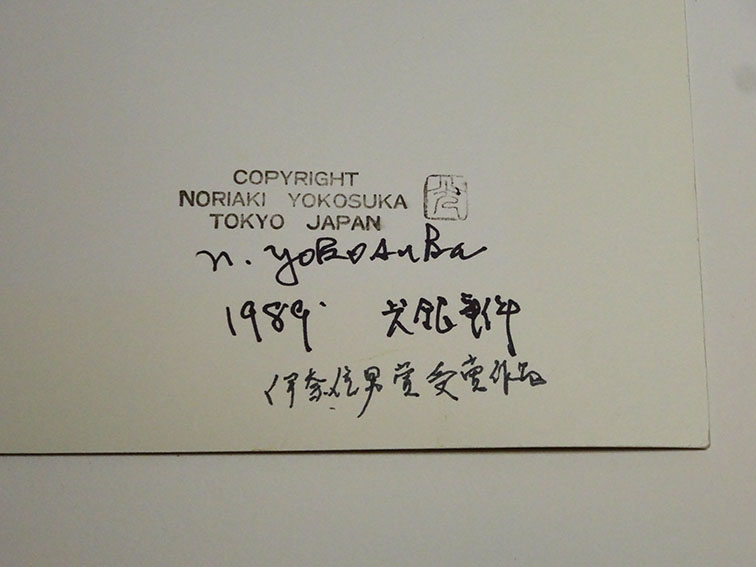 COPYRIGHT
NORIAKI YOKOSUKA
TOKYO JAPAN
n. yoKosuKa
1989. 光銀事件
伊奈信男賞受賞作品